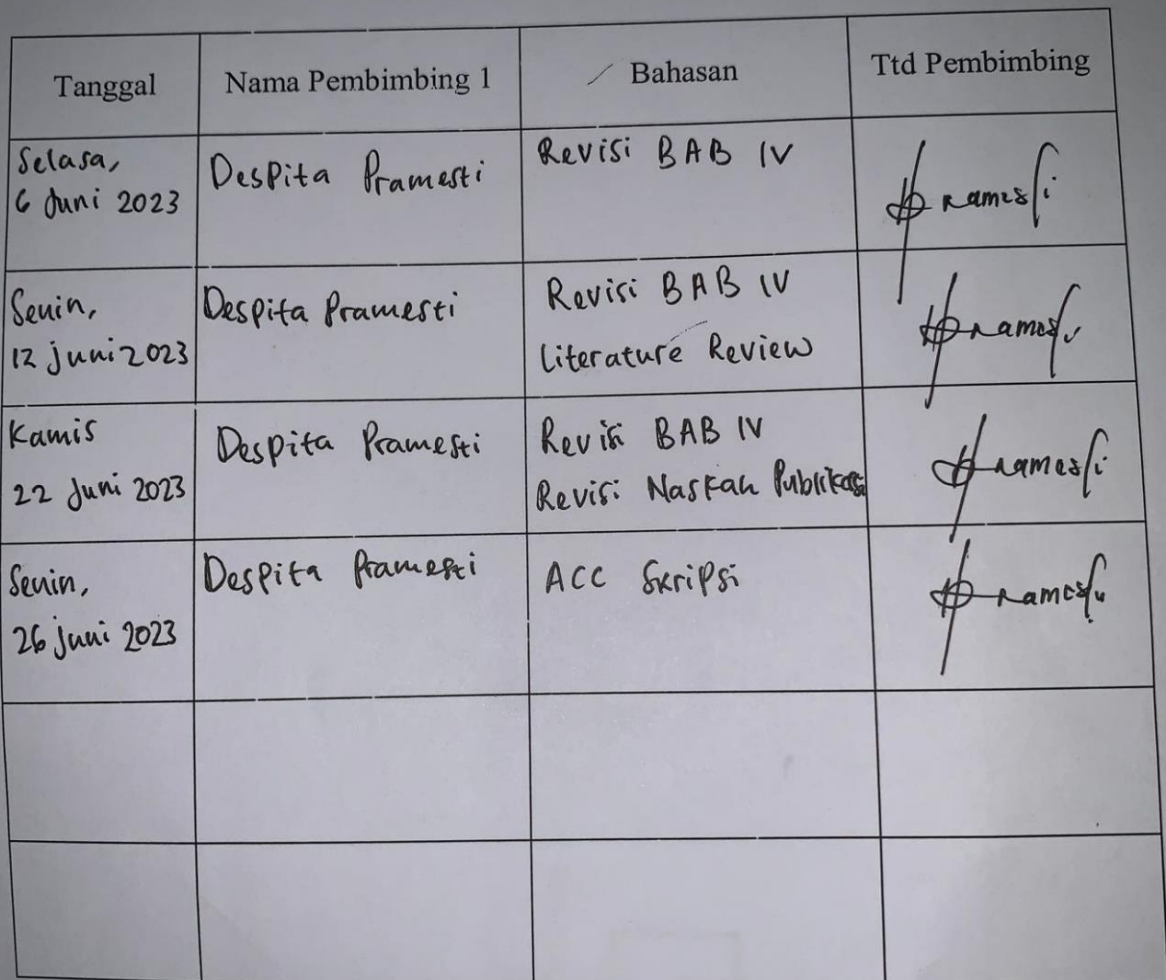 Tanggal Nama Pembimbing 1 Bahasan Ttd Pembimbing
Selasa,
6 Juni 2023
Despita Pramesti
Revisi BAB IV
Pramesti
Senin,
12 juni 2023
Despita Pramesti
Revisi BAB IV
Literature Review
Pramesti
Kamis
22 Juni 2023
Despita Pramesti
Revisi BAB IV
Revisi Naskah Publikasi
Pramesti
Senin,
26 juni 2023
Despita Pramesti
ACC Skripsi
Pramesti